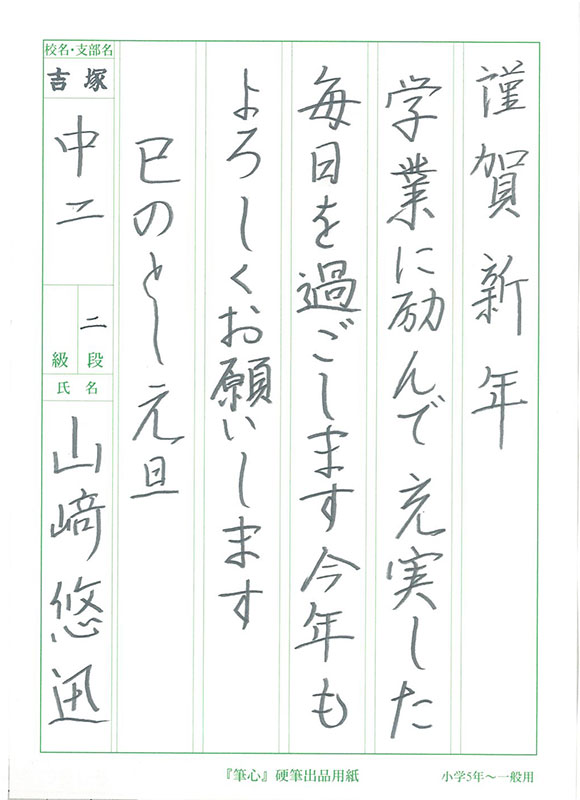 謹賀新年
学業に励んで充実した
毎日を過ごします今年も
よろしくお願いします
巳のとし元旦
校名・支部名
吉塚
中二
二段
級
氏名
山﨑悠迅
『筆心』硬筆出品用紙
小学5年～一般用